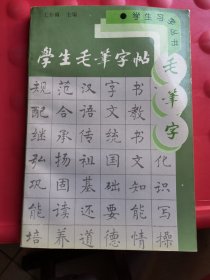 主编
学生习字丛书
学生毛笔字帖
毛笔字
规范汉字书
配合语文教
继承传统书
弘扬祖国文化
巩固基础知识
能读还要能写
培养道德情操